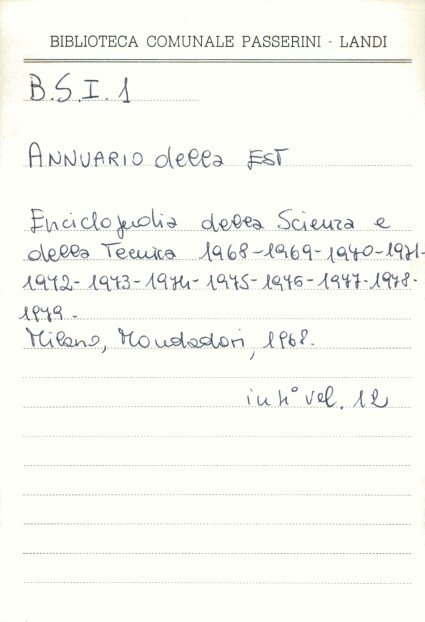 BIBLIOTECA COMUNALE PASSERINI - LANDI
B.S.I. 1
ANNUARIO della EST
Enciclopedia della Scienza e
della Tecnica 1968-1969-1970-1971-
1972-1973-1974-1975-1976-1977-1978-
1979-
Milano, Mondadori, 1968.
in n° vol. 12